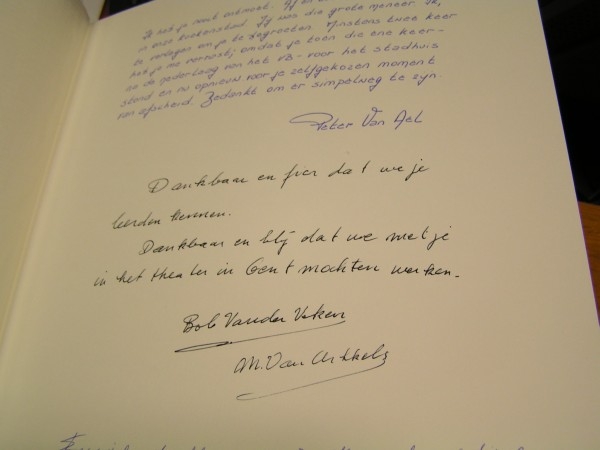 Ik heb je nooit ontmoet.
in onze koekenstad. Jij was die grote meneer. Ik,
te verlegen om je te begroeten. Minstens twee keer
heb je me verrast; omdat je toen die ene keer -
na de nederlaag van het VB - voor het stadhuis
stond en nu opnieuw voor je zelfgekozen moment
van afscheid. Bedankt om er simpelweg te zijn.
Peter Van Ael
Dankbaar en fier dat we je
leerden kennen.
Dankbaar en blij dat we met je
in het theater in Gent mochten werken.
Bob Vander Veken
M. Van